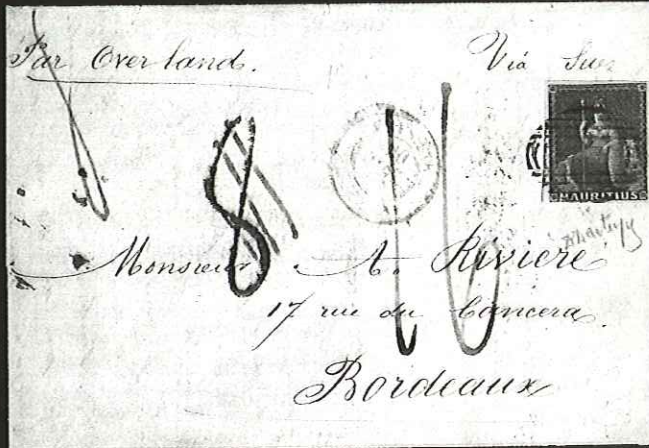 Par Overland.
Via Suez
MAURITIUS
8
16
Monsieur A. Riviere
17 rue du Cancera
Bordeaux